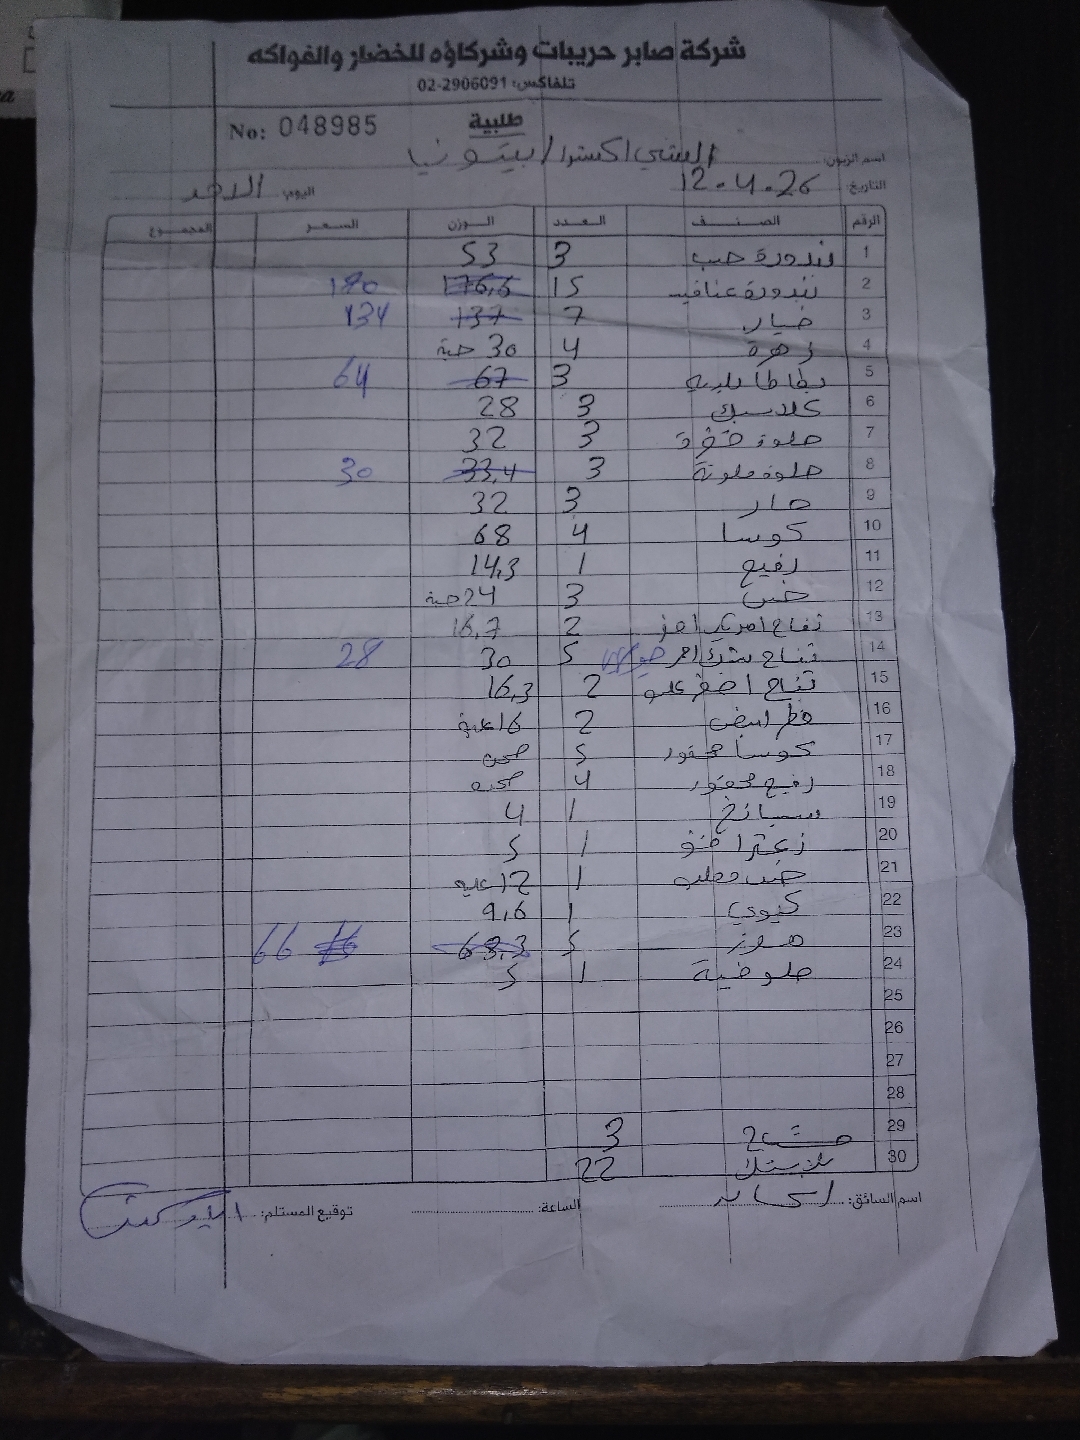 شركة صابر حريبات وشركاؤه للخضار والفواكه
تلفاكس: 02-2906091
طلبية
No: 048985
اسم الزبون: الشني اكسترا / بيتونيا
التاريخ: 12.4.26 اليوم: الاحد
الرقم الصنف العدد الوزن السعر المجموع
1 بندورة حب 3 53
2 بندورة عناقيد 15 176,6 170
3 خيار 7 137 134
4 زهرة 4 30 حبة
5 بطاطا 3 67 64
6 كلاسيك 3 28
7 حلوة 3 32
8 حلوة ملونة 3 33,4 30
9 حار 3 32
10 كوسا 4 68
11 رفيع 1 14,3
12 خس 3 24 حبة
13 تفاح 2 16,7
14 تفاح 5 30 28
15 تفاح اخضر علب 2 16,3
16 فطر ابيض 2 16 علبة
17 كوسا محفور 5 صحن
18 رفيع محفور 4 صحن
19 سبانخ 1 4
20 زعتر اخضر 1 5
21 1 12 علبه
22 كيوي 1 9,6
23 موز 5 68,3 66
24 ملوخية 1 5
25
26
27
28
29 3
30 بلاستك 22
اسم السائق: الساعة: توقيع المستلم: